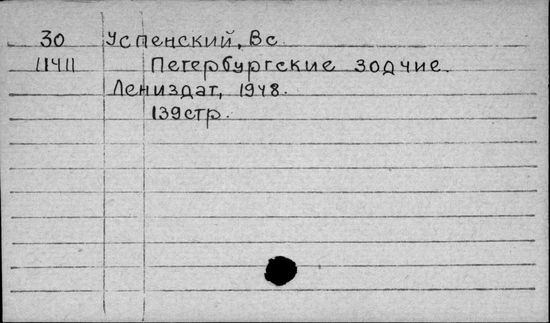 30 Успенский, Вс.
11411 Петербургские зодчие.
Лениздат, 1948.
139стр.